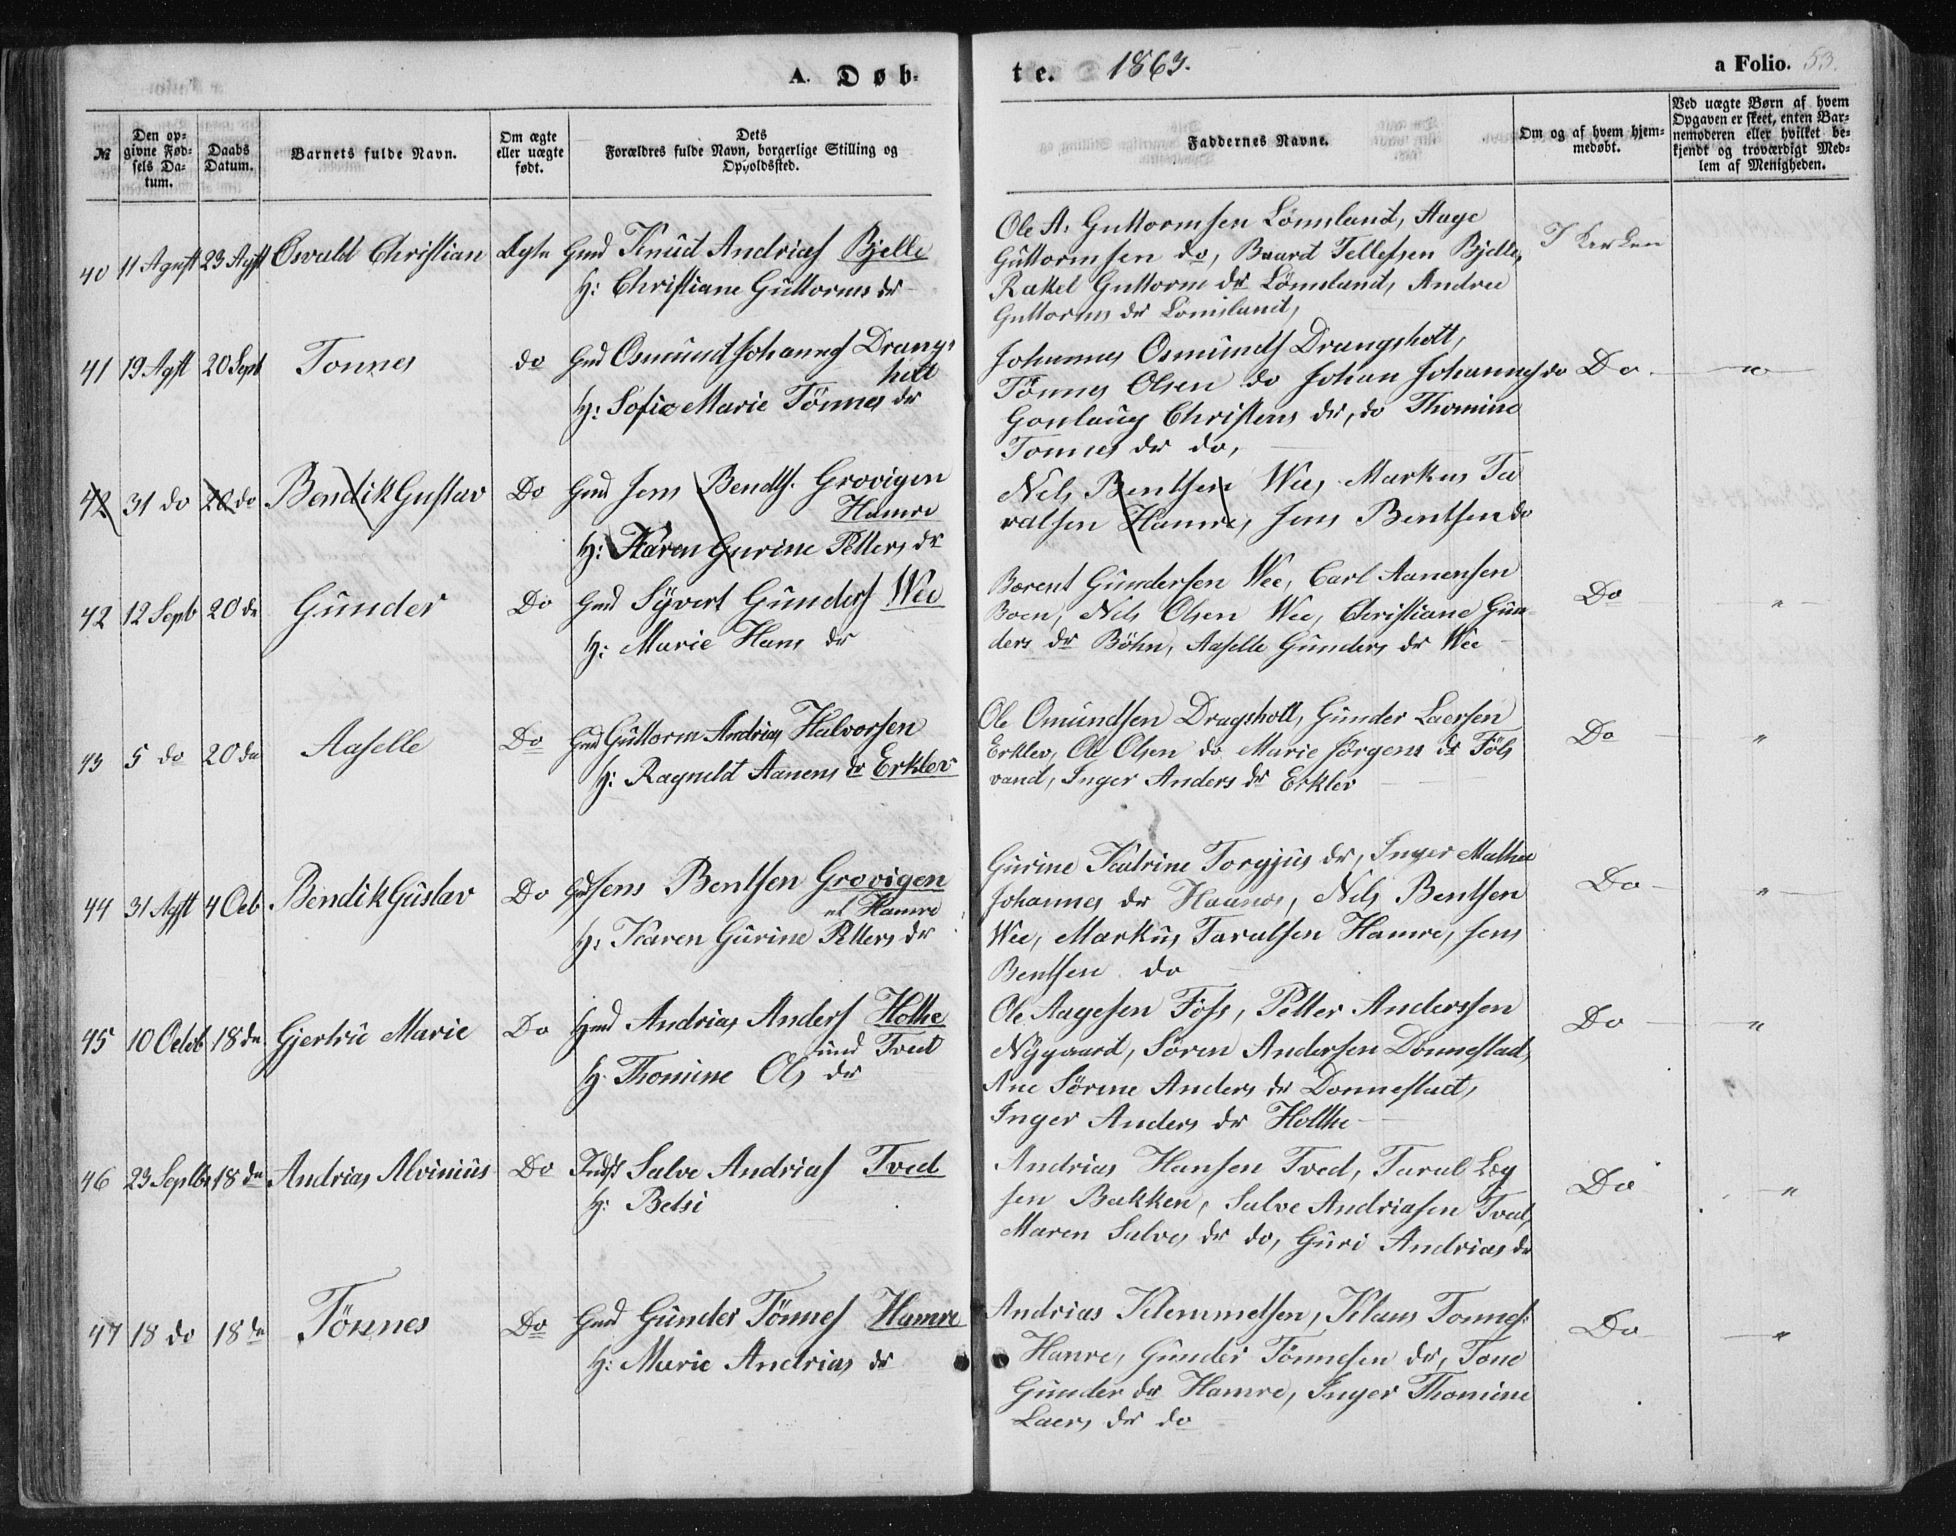 A. Døb-
te. 1863.
a Folio. 53.
№
Den op-
givne Fød-
sels Da-
tum.
Daabs
Datum.
Barnets fulde Navn.
Om ægte
eller uægte
født.
Dets
Forældres fulde Navn, borgerlige Stilling og
Opholdssted.
Faddernes Navne.
Om og af hvem hjem-
medøbt.
Ved uægte Børn af hvem
Opgaven er skeet, enten Bar-
nemoderen eller hvilket be-
kjendt og troværdigt Med-
lem af Menigheden.
40 11 Agust 23 Agst Osvald Christian Ægte Gmd Knud Andrias Bjelle
H: Christiane Guttorms dr
Ole A. Guttormsen Lönnsland, Aage
Guttormsen do, Baard Tellefsen Bjelle,
Rakel Guttorm dr Lönnsland, Andrea
Guttorms dr Lonnsland,
I Kerken
41 19 Agst 20 Sept Tonnes do Gmd Osmund Johannes Drangs
holt
H: Sofie Marie Tönnes dr
Johannes Osmunds Drangsholt,
Tönnes Olsen do Johan Johannes do
Gonlaug Christens dr, do Thomine
Tonnes dr do,
Do - "
42 31 do 20 do Bendik Gustav Do Gmd Jens Bendts. Grovigen
Hamre
H: Karen Gurine Petters dr
Nels Bentsen Wee, Markus Ta
ralsen Hamre, Jens Bentsen do
42 12 Septb 20 do Gunder Do Gmd Syvert Gunders Wee
H: Marie Hans dr
Barent Gundersen Wee, Carl Aanensen
Boen, Nels Olsen Wee, Christiane Gun-
ders dr Böhn, Aaselle Gunders dr Wee
Do "
43 5 do 20 do Aaselle Do Gmd Guttorm Andrias Halvorsen
H: Ragneld Aanens dr Erklev
Ole Omundsen Dragsholt, Gunder Laersen
Erklev, Ole Olsen do Marie Jörgens dr Föls
vand, Inger Anders dr Erklev
Do "
44 31 Agst 4 Octb Bendik Gustav Do Gmd Jens Bentsen Grovigen
el Hamre
H: Karen Gurine Petters dr
Gurine Katrine Torgjus dr, Inger Mathea
Johannes dr Haanes, Nils Bentsen
Wee, Markus Taralsen Hamre, Jens
Bentsen do
Do "
45 10 Octob 18 do Gjertru Marie Do Hmd Andrias Anders Holke
und Tved
H. Thomine Ols dr
Ole Aagesen Föss, Petter Anderssen
Nygaard, Sören Andersen Donnestad,
Ane Sörine Anders dr Donnestad,
Inger Anders dr Holkke
Do "
46 23 Septbr 18 do Andrias Alvinius Do Indst Salve Andrias Tved
H: Betsi
Andrias Hansen Tved, Taral Leg
sen Bakken, Salve Andriasen Tved,
Maren Salves dr do, Guri Andrias dr
Do "
47 18 do 18 do Tönnes Do Gmd Gunder Tönnes Hamre
H: Marie Andrias dr
Andrias Klemmetsen, Klaus Tonnes.
Hamre, Gunder Tönnesen do, Tone
Gunder dr Hamre, Inger Thomine
Laers dr do
Do "